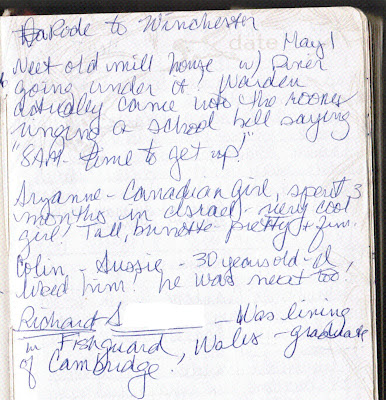 Rode to Winchester
May 1
Neet old mill house w/ River
going under it! Warden
actually came into the rooms
ringing a school bell saying
"8AM - time to get up!"
Aryanne - Canadian girl, spent 3
months in Israel - very cool
girl! Tall, brunette - pretty + fun.
Colin - Aussie - 30 years old - I
liked him! he was neat too!
Richard S - Was living
in Fishguard, Wales - graduate
of Cambridge!
date